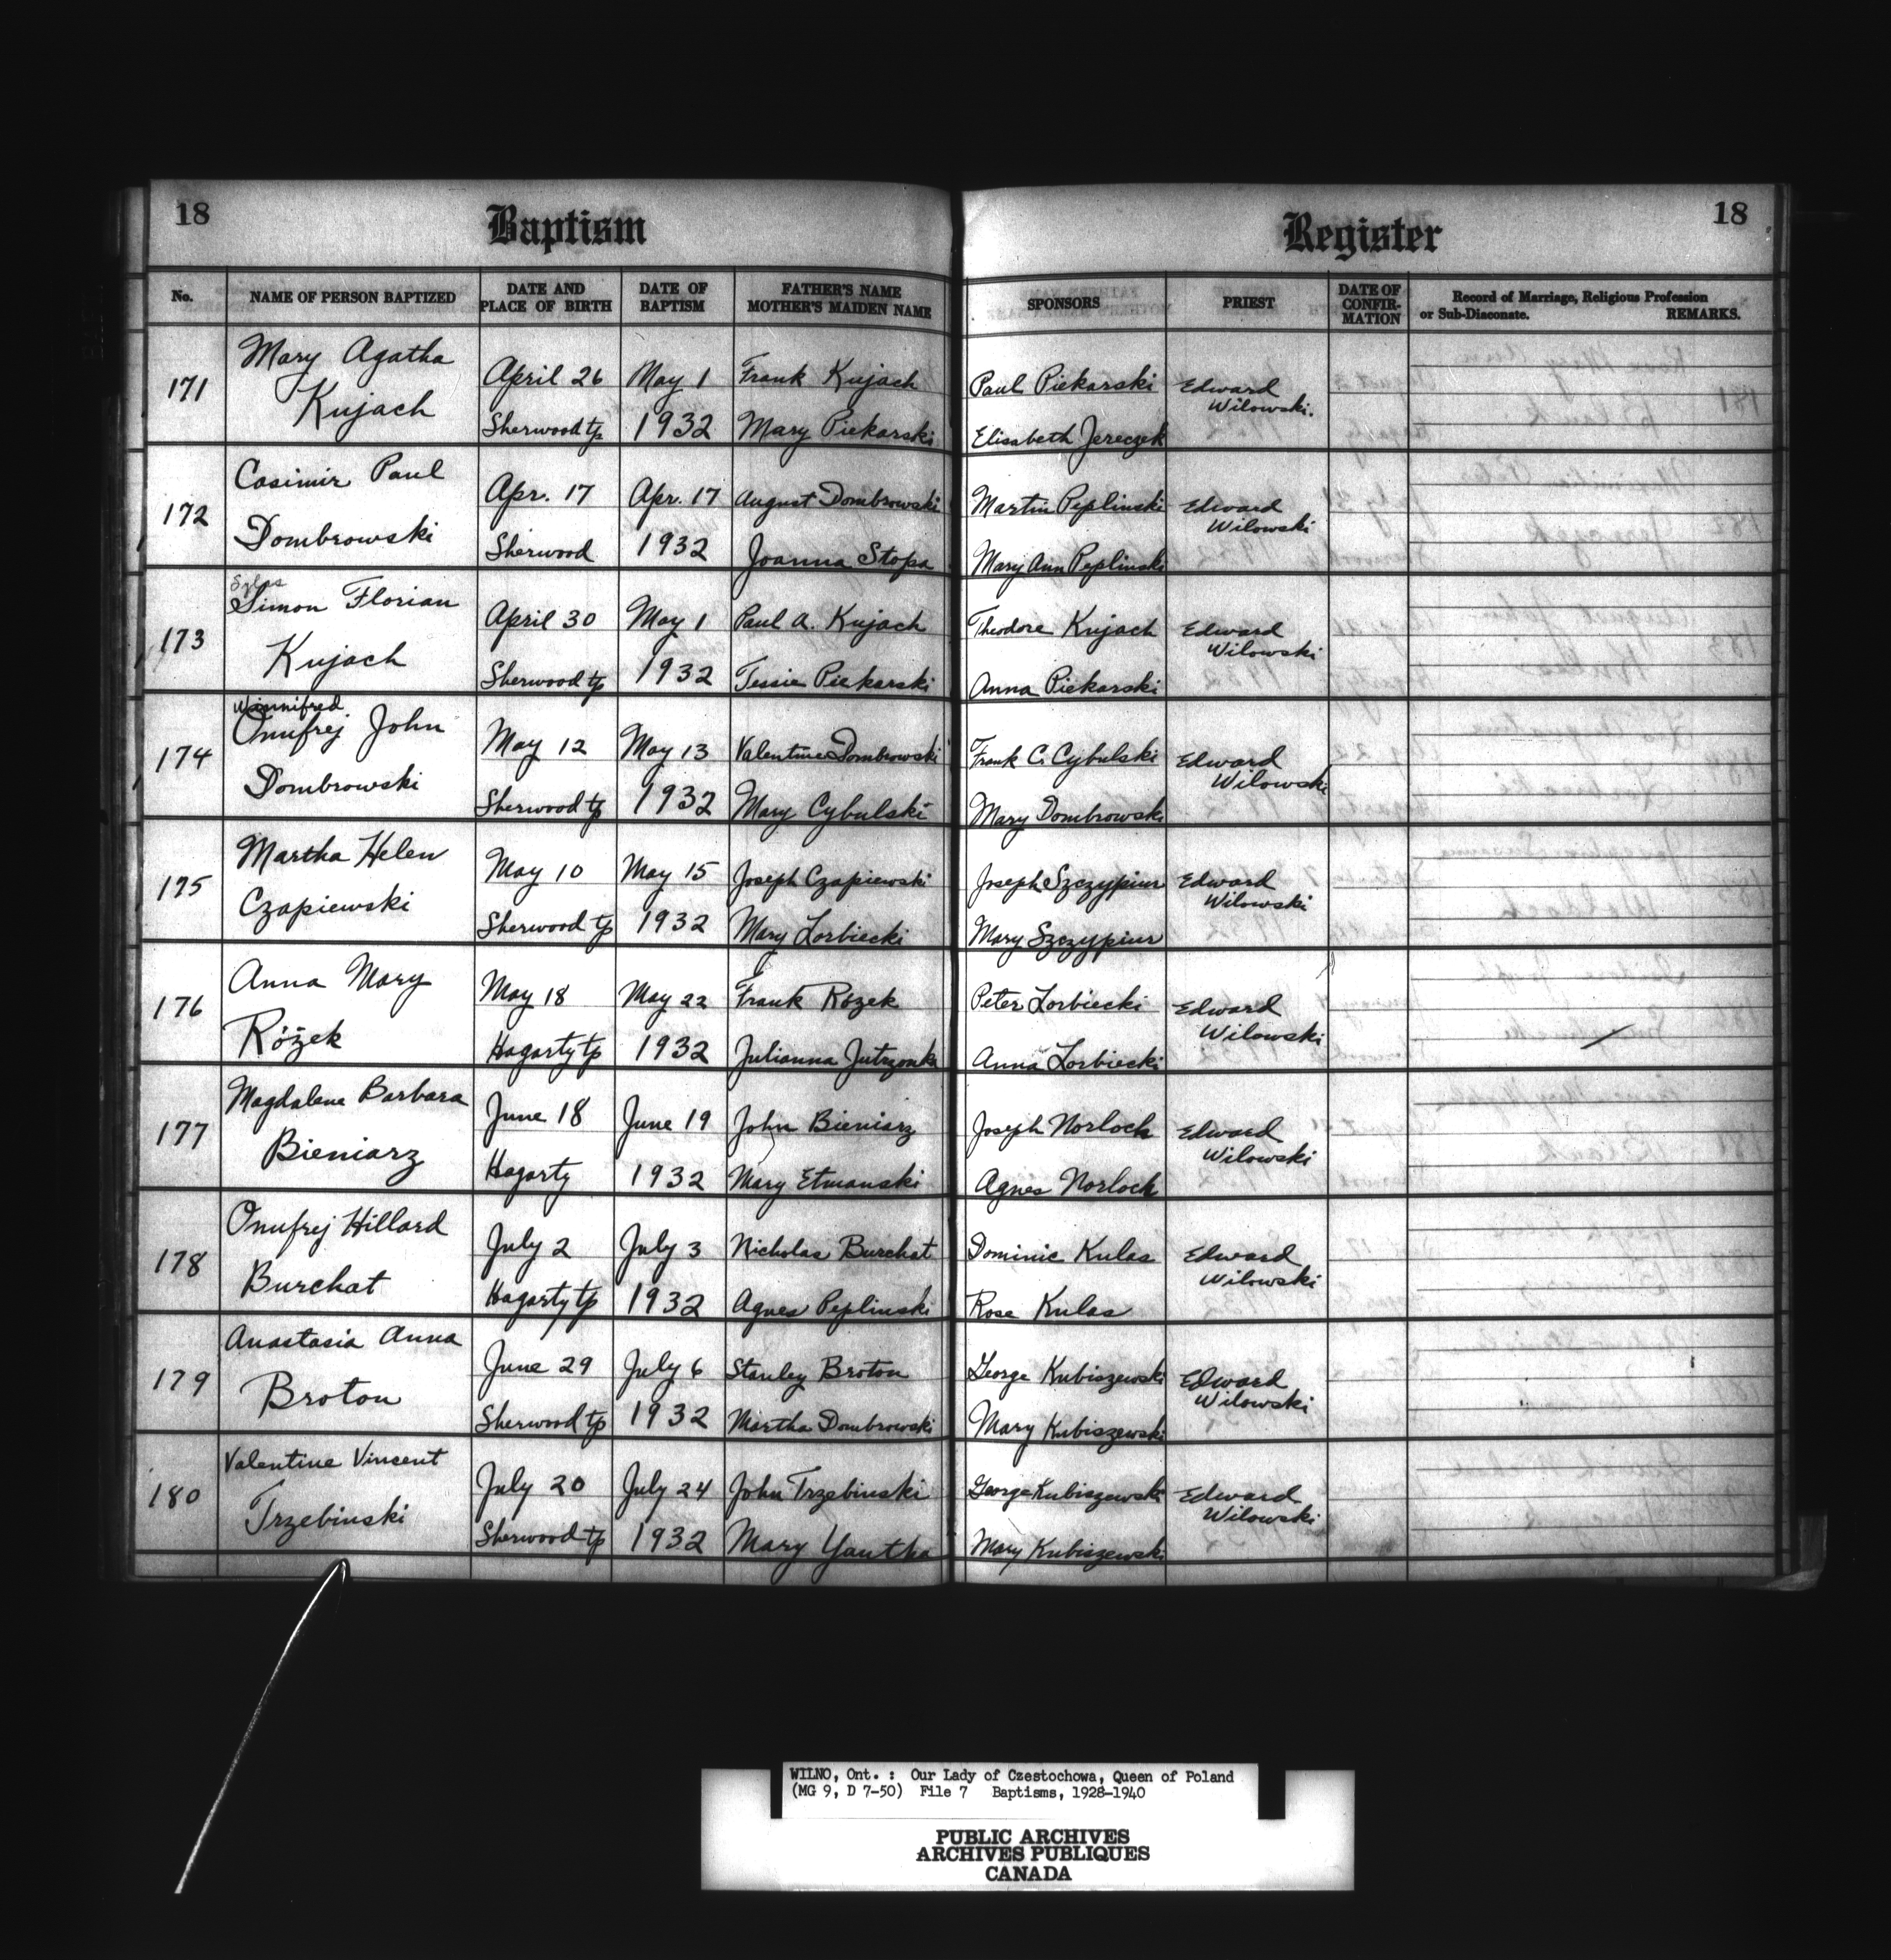 18 Baptism Register 18
No. NAME OF PERSON BAPTIZED DATE AND PLACE OF BIRTH DATE OF BAPTISM FATHER'S NAME MOTHER'S MAIDEN NAME SPONSORS PRIEST DATE OF CONFIR-MATION Record of Marriage, Religious Profession or Sub-Diaconate. REMARKS.
171 Mary Agatha April 26 May 1 Frank Kujach Paul Piekarski Edward Wilowski.
Kujach Sherwood tp 1932 Mary Piekarski Elisabeth Jereczek
172 Casimir Paul Apr. 17 Apr. 17 August Dombrowski Martin Peplinski Edward Wilowski
Dombrowski Sherwood 1932 Joanna Stopa Mary Ann Peplinski
173 Simon Florian April 30 May 1 Paul A. Kujach Theodore Kujach Edward Wilowski
Kujach Sherwood tp 1932 Tessie Piekarski Anna Piekarski
Winnifred
174 Onufrej John May 12 May 13 Valentine Dombrowski Frank C. Cybulski Edward Wilowski
Dombrowski Sherwood tp 1932 Mary Cybulski Mary Dombrowski
175 Martha Helen May 10 May 15 Joseph Czapiewski Joseph Szczypiur Edward Wilowski
Czapiewski Sherwood tp 1932 Mary Lorbiecki Mary Szczypiur
176 Anna Mary May 18 May 22 Frank Rózek Peter Lorbiecki Edward Wilowski
Różek Hagarty tp 1932 Julianna Jutrzonka Anna Lorbiecki
177 Magdalene Barbara June 18 June 19 John Bieniarz Joseph Norlock Edward Wilowski
Bieniarz Hagarty 1932 Mary Etmanski Agnes Norlock
178 Onufrej Hillard July 2 July 3 Nicholas Burchat Dominic Kulas Edward Wilowski
Burchat Hagarty tp 1932 Agnes Peplinski Rose Kulas
179 Anastasia Anna June 29 July 6 Stanley Broton George Kubiszewski Edward Wilowski
Broton Sherwood tp 1932 Martha Dombrowski Mary Kubiszewski
180 Valentine Vincent July 20 July 24 John Trzebinski George Kubiszewski Edward Wilowski
Trzebinski Sherwood tp 1932 Mary Yantha Mary Kubiszewski
WILNO, Ont. : Our Lady of Czestochowa, Queen of Poland
(MG 9, D 7-50) File 7 Baptisms, 1928-1940
PUBLIC ARCHIVES
ARCHIVES PUBLIQUES
CANADA